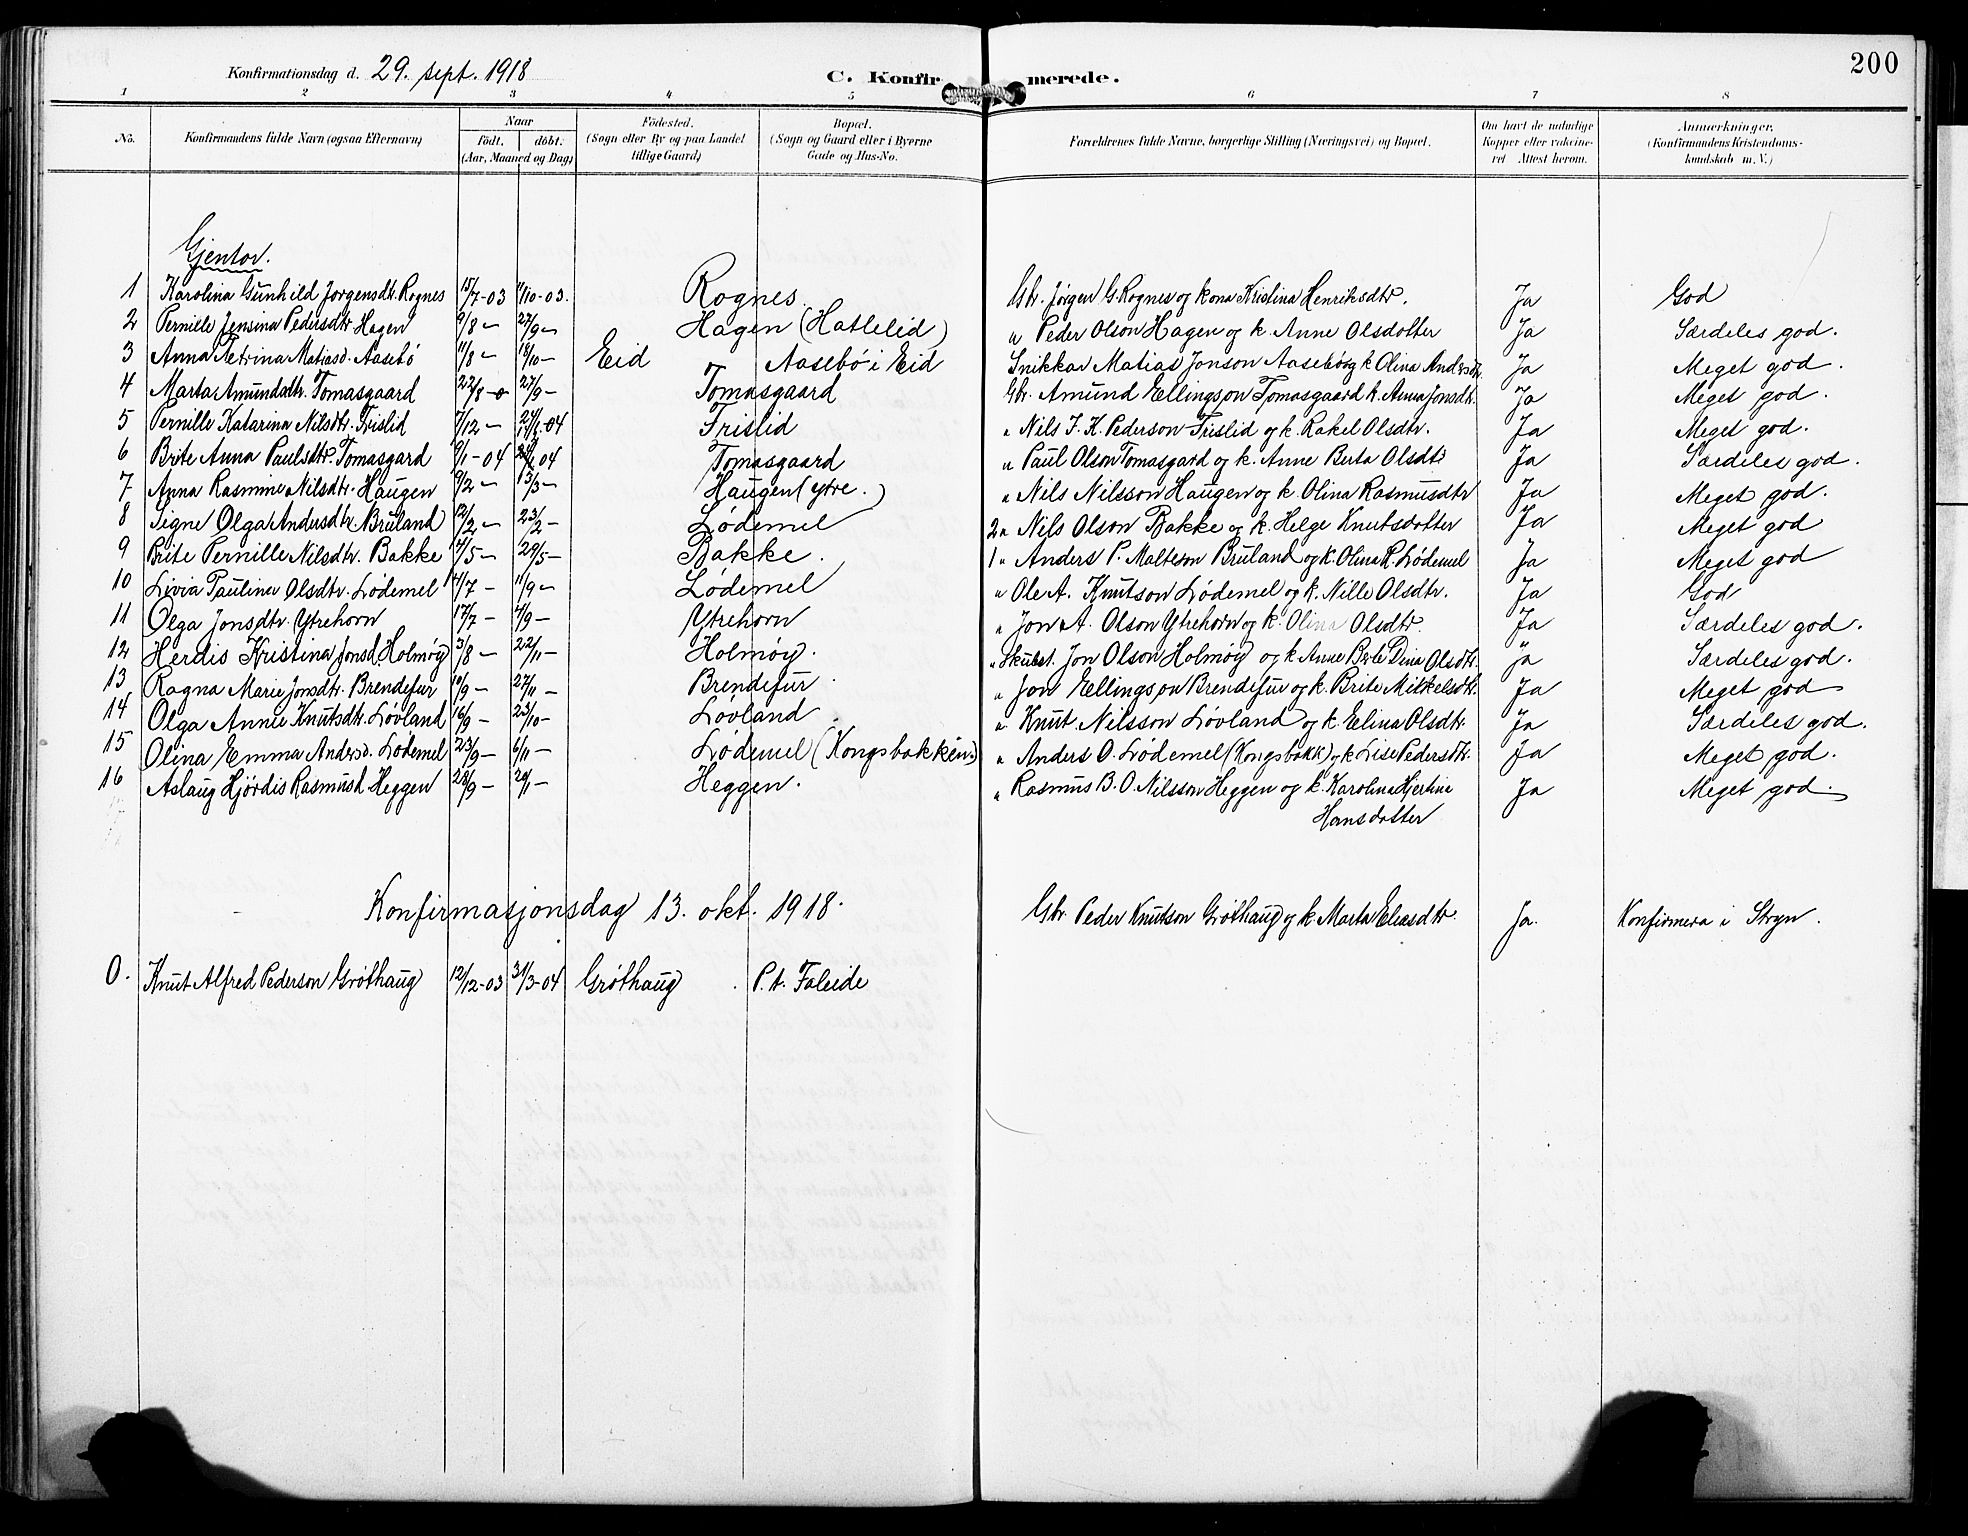 Konfirmationsdag d. 29. sept. 1918 C. Konfirmerede. 200
1 2 3 4 5 6 7 8
No. Konfirmandens fulde Navn (ogsaa Efternavn) Naar født. døbt. (Aar, Maaned og Dag) Fødested. (Sogn eller By og paa Landet tillige Gaard) Bopæl. (Sogn og Gaard eller i Byerne Gade og Hus-No. Forældrenes fulde Navne, borgerlige Stilling (Næringsvei) og Bopæl. Om havt de naturlige Kopper eller vaccineret Attest herom. Anmærkninger. (Konfirmandens Kristendomskundskab m. V.)
Gjentor.
1 Karolina Gunhild Jørgensdtr. Rognes 15/7-03 11/10-03. Rognes Gbr. Jørgen G. Rognes og kona Kristina Henriksdtr. Ja God
2 Pernille Jensina Pedersdtr. Hagen 9/8 - 27/9 - Hagen (Hatlelid) " Peder Olson Hagen og k. Anne Olsdotter Ja Særdeles god.
3 Anna Petrina Matiasd. Aasebø 11/8 - 18/10 - Eid Aasebø i Eid Snikkar Matias Jonson Aasebø og k Olina Andersdtr. Ja Meget god.
4 Marta Amundsdtr. Tomasgaard 22/8 - 27/9 - Tomasgaard Gbr. Amund Ellingson Tomasgaard k. Anna Jonsdtr. Ja Meget god.
5 Pernille Katarina Nilsdtr. Frislid 7/12 - 04 Frislid " Nils J. K. Pederson Frislid og k. Rakel Olsdtr. Ja Meget god.
6 Brite Anna Paulsdtr. Tomasgard 9/1-04 04 Tomasgaard " Paul Olson Tomasgard og k. Anne Berta Olsdtr Ja Særdeles god.
7 Anna Rasmine Nilsdtr. Haugen 9/2 - 13/3 - Haugen (ytre.) " Nils Nilsson Haugen og k. Olina Rasmusdtr Ja Meget god.
8 Signe Olga Andersdtr. Bruland 12/2 - 23/2 - Lødemel 2 " Nils Olson Bakke og k. Helge Knutsdotter Ja Meget god
9 Brite Pernille Nilsdtr. Bakke /5 - 29/5 - Bakke. 1 " Anders P. Malteson Bruland og k. Olina R. Lødemel Ja Meget god
10 Livia Paulina Olsdtr. Lødemel 4/7 - 11/9 - Lødemel " Ole A. Knutson Lødemel og k. Nille Olsdtr. Ja God
11 Olga Jonsdtr. Ytrehorn 17/7 - 4/9 - Ytrehorn " Jon A. Olson Ytrehorn og k. Olina Olsdtr. Ja Særdeles god.
12 Herdis Kristina Jonsd. Holmøy 3/8 - 22/11 - Holmøy. " Skulest. Jon Olson Holmøy og k Anne Berte Dina Olsdtr. ja Særdeles god.
13 Ragna Marie Jonsdtr. Brendefur 10/9 - 27/11 - Brendefur " Jon Ellingson Brendefur og k. Brite Mikkelsdtr. Ja Meget god
14 Olga Annie Knutsdtr. Løvland 16/9 - 23/10 - Løvland " Knut Nilsson Løvland og k. Elina Olsdtr. Ja Særdeles god.
15 Olina Emma Andersd. Lødemel 23/9 - 6/11 - Lødemel (Kongsbakken) " Anders O. Lødemel (Kongsbakk) og k Lise Pedersdtr. Ja Meget god.
16 Aslaug Hjørdis Rasmusd. Heggen 28/9 - 20/11 - Heggen. " Rasmus B. O. Nilsson Heggen og k. Karolina Hjertina Ja Meget god.
Hansdotter
Konfirmasjonsdag 13. okt. 1918.
Gbr. Peder Knutson Grøthaug og k. Marta Eliasdtr. Ja. Konfirmera i Stryn.
0. Knut Alfred Pederson Grøthaug 12/12-03 31/3-04 Grøthaug P. t. Faleide